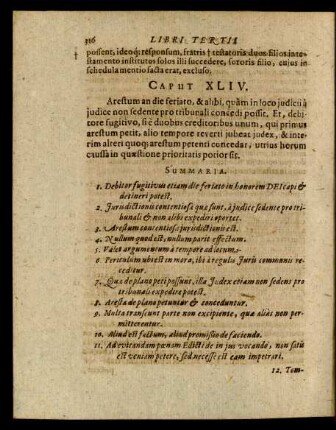 316 LIBRI TERTII
possent, ideoq; responsum, fratris † testatoris duos filios inte-
stamento institutos solos illi succedere, sororis filio, cujus in
schedula mentio facta erat, excluso.
CAPUT XLIV.
Arestum an die feriato, & alibi, quàm in loco judicii à
judice non sedente pro tribunali concedi possit. Et, debi-
tore fugitivo, si è duobus creditoribus unum, qui primus
arestum petit, alio tempore reverti jubeat judex, & inte-
rim alteri quoq; arestum petenti concedat, utrius horum
caussa in quæstione prioritatis potior sit.
SUMMARIA.
1. Debitor fugitivus etiam die feriato in honorem DEI capi &
detineri potest.
2. Jurisdictionis contentiosæ quæ sunt, à judice sedente pro tri-
bunali & non alibi expediri oportet.
3. Arestum contentiosæ jurisdictionis est.
4. Nullum quod est, nullum parit effectum.
5. Valet argumentum à tempore ad locum.
6. Periculum ubi est in mora, ibi à regulis Juris communis re-
ceditur.
7. Quæ de plano peti possunt, illa Judex etiam non sedens pro
tribunali expedire potest.
8. Aresta de plano petuntur & conceduntur.
9. Multa transeunt parte non excipiente, quæ aliàs non per-
mitterentur.
10. Aliud est factum, aliud promissio de faciendo.
11. Ad evitandam pœnam Edicti de in jus vocando, non satis
est veniam petere, sed necesse est eam impetrari.
12. Tem-